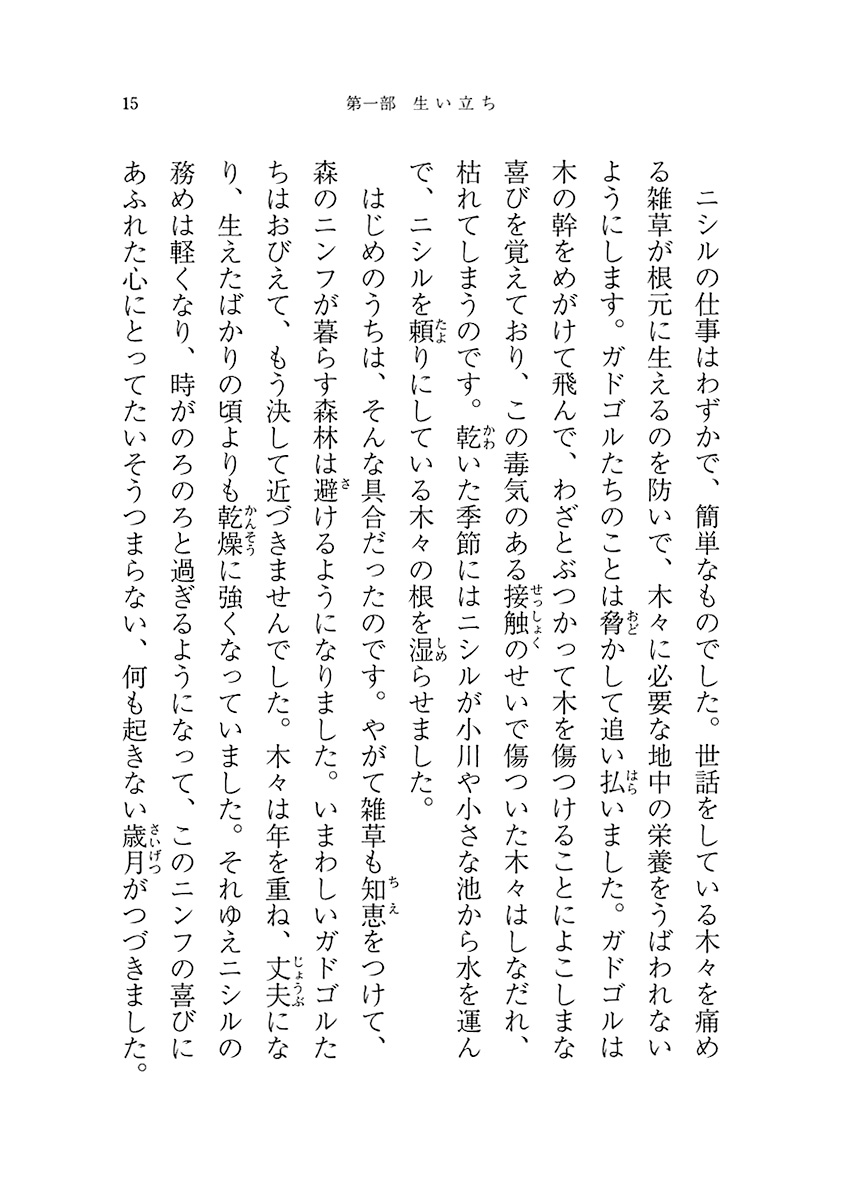 15
第一部 生い立ち
ニシルの仕事はわずかで、簡単なものでした。世話をしている木々を痛め
る雑草が根元に生えるのを防いで、木々に必要な地中の栄養をうばわれない
ようにします。ガドゴルたちのことは脅かして追い払いました。ガドゴルは
木の幹をめがけて飛んで、わざとぶつかって木を傷つけることによこしまな
喜びを覚えており、この毒気のある接触のせいで傷ついた木々はしなだれ、
枯れてしまうのです。乾いた季節にはニシルが小川や小さな池から水を運ん
で、ニシルを頼りにしている木々の根を湿らせました。
はじめのうちは、そんな具合だったのです。やがて雑草も知恵をつけて、
森のニンフが暮らす森林は避けるようになりました。いまわしいガドゴルた
ちはおびえて、もう決して近づきませんでした。木々は年を重ね、丈夫にな
り、生えたばかりの頃よりも乾燥に強くなっていました。それゆえニシルの
務めは軽くなり、時がのろのろと過ぎるようになって、このニンフの喜びに
あふれた心にとってたいそうつまらない、何も起きない歳月がつづきました。